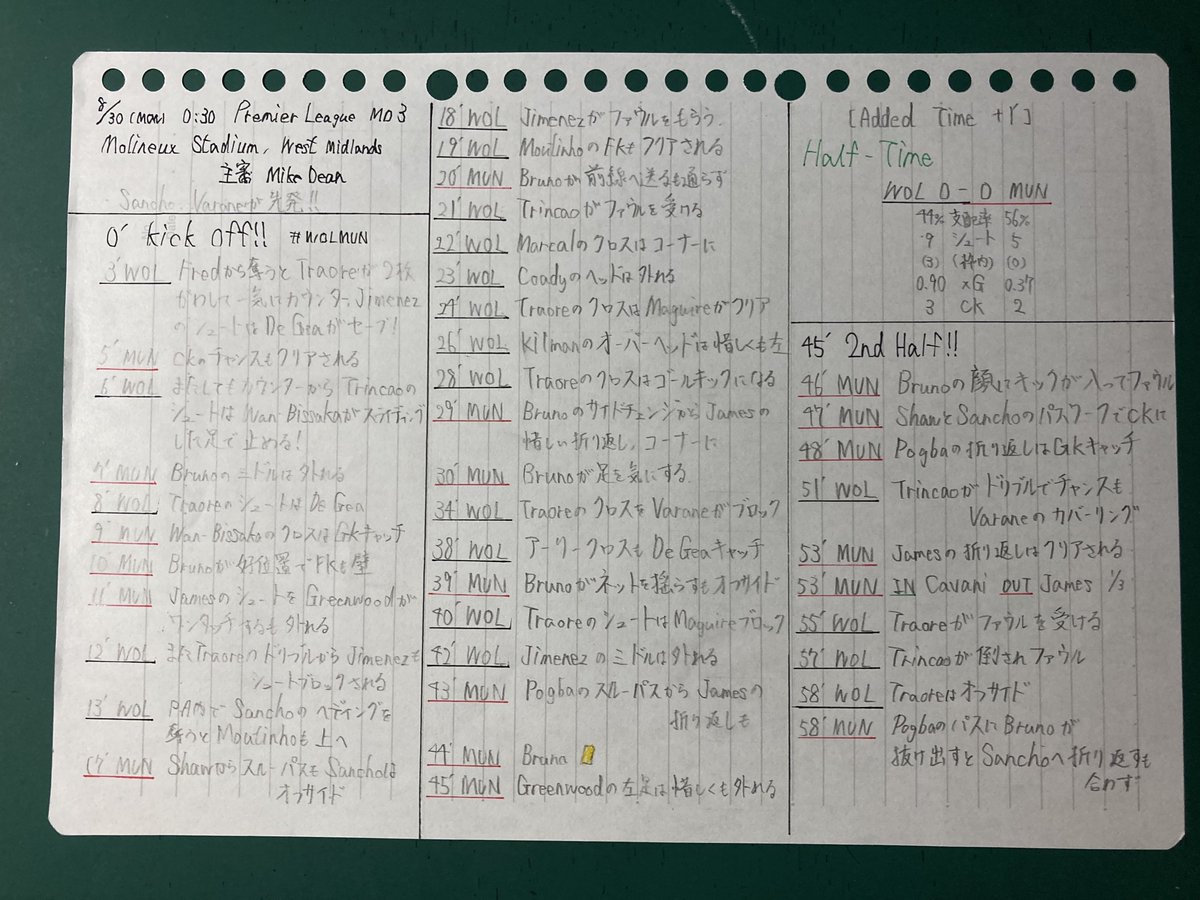 8/30 (MON) 0:30 Premier League MD3
Molineux Stadium, West Midlands
主審 Mike Dean
Sancho, Varaneが先発!!
0' kick off!! #WOLMUN
3' WOL Fredから奪うとTraoreが2枚
かわして一気にカウンター Jimenez
のシュートはDe Geaがセーブ!
5' MUN CKのチャンスもクリアされる
6' WOL またしてもカウンターから Trincaoの
シュートは Wan-Bissakaがスライディング
した足で止める!
7' MUN Brunoのミドルは外れる
8' WOL Traoreのシュートは De Gea
9' MUN Wan-Bissakaのクロスは GKキャッチ
10' MUN Brunoが好位置でFKも壁
11' MUN Jamesのシュートを Greenwoodが
ワンタッチするも外れる
12' WOL またTraoreのドリブルから Jimenezも
シュートブロックされる
13' WOL PA内で Sanchoのヘディングを
奪うと Moutinhoも上へ
17' MUN Shawからスルーパスも Sanchoは
オフサイド
18' WOL Jimenezがファウルをもらう.
19' WOL MoutinhoのFKもクリアされる
20' MUN Brunoが前線へ送るも通らず
21' WOL Trincaoがファウルを受ける
22' WOL Marcalのクロスはコーナーに
23' WOL Coadyのヘッドは外れる
24' WOL TraoreのクロスはMaguireがクリア
26' WOL Kilmanのオーバーヘッドは惜しくも左
28' WOL Traoreのクロスはゴールキックになる
29' MUN Brunoのサイドチェンジから Jamesの
惜しい折り返し, コーナーに
30' MUN Brunoが足を気にする.
34' WOL Traoreのクロスを Varaneがブロック
38' WOL アーリークロスも De Geaキャッチ
39' MUN Brunoがネットを揺らすもオフサイド
40' WOL TraoreのシュートはMaguireブロック
42' WOL Jimenezのミドルは外れる
43' MUN Pogbaのスルーパスから Jamesの
折り返しも
44' MUN Bruno
45' MUN Greenwoodの左足は惜しくも外れる
[Added Time +1']
Half-Time
WOL 0 - 0 MUN
44% 支配率 56%
9 シュート 5
(3) (枠内) (0)
0.90 xG 0.37
3 CK 2
45' 2nd Half!!
46' MUN Brunoの顔にキックが入ってファウル
47' MUN ShawとSanchoのパスワークでCKに
48' MUN Pogbaの折り返しはGKキャッチ
51' WOL Trincaoがドリブルでチャンスも
Varaneのカバーリング
53' MUN Jamesの折り返しはクリアされる
53' MUN IN Cavani OUT James 1/3
55' WOL Traoreがファウルを受ける
57' WOL Trincaoが倒されファウル
58' WOL Traoreはオフサイド
58' MUN PogbaのパスにBrunoが
抜け出すとSanchoへ折り返すも
合わず